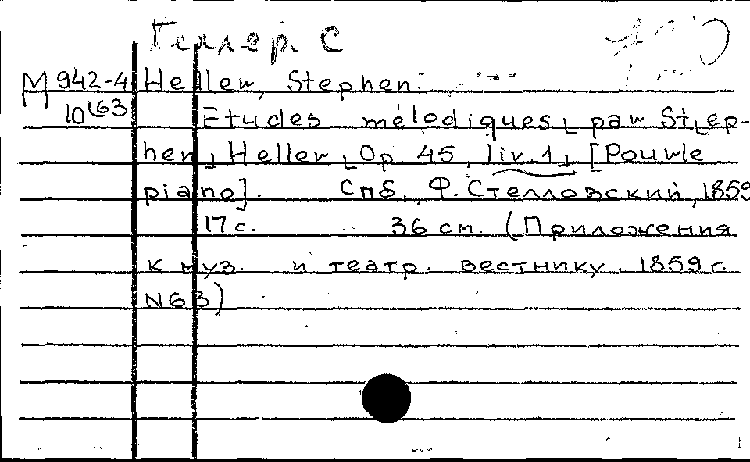 Геллер. С
М 942-4 Heller, Stephen.
10163 Etudes mélodiques par St[ep-
hen] Heller Op 45, liv.1 [Pour le
piano]. Спб, Ф. Стелловский, 1859
17 с. 36 см. (Приложения
к муз. и театр. вестнику. 1859 г.
N6 3)